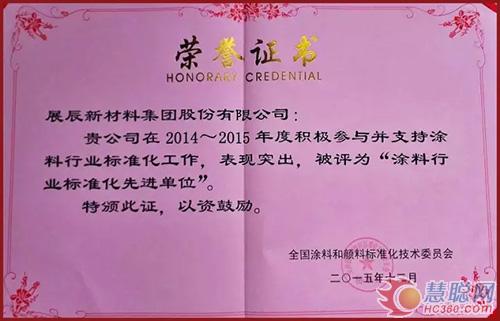 荣誉证书
HONORARY CREDENTIAL
展辰新材料集团股份有限公司：
贵公司在2014～2015年度积极参与并支持涂
料行业标准化工作，表现突出，被评为“涂料行
业标准化先进单位”。
特颁此证，以资鼓励。
全国涂料和颜料标准化技术委员会
二〇一五年十二月
慧聪网
HC360.com